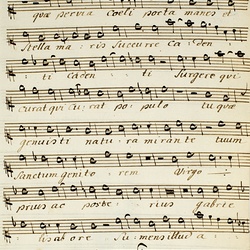 quæ pervia coeli porta manes et
Stella ma - ris Succurre ca den
ti caden ti Surgere qui
curat qui cu - rat po - pulo tu quæ
genuisti natu - ra mirante tuum
Sanctum genito - rem Virgo
prius ac poste - rius gabrie
lis ab ore Su - mens illud a